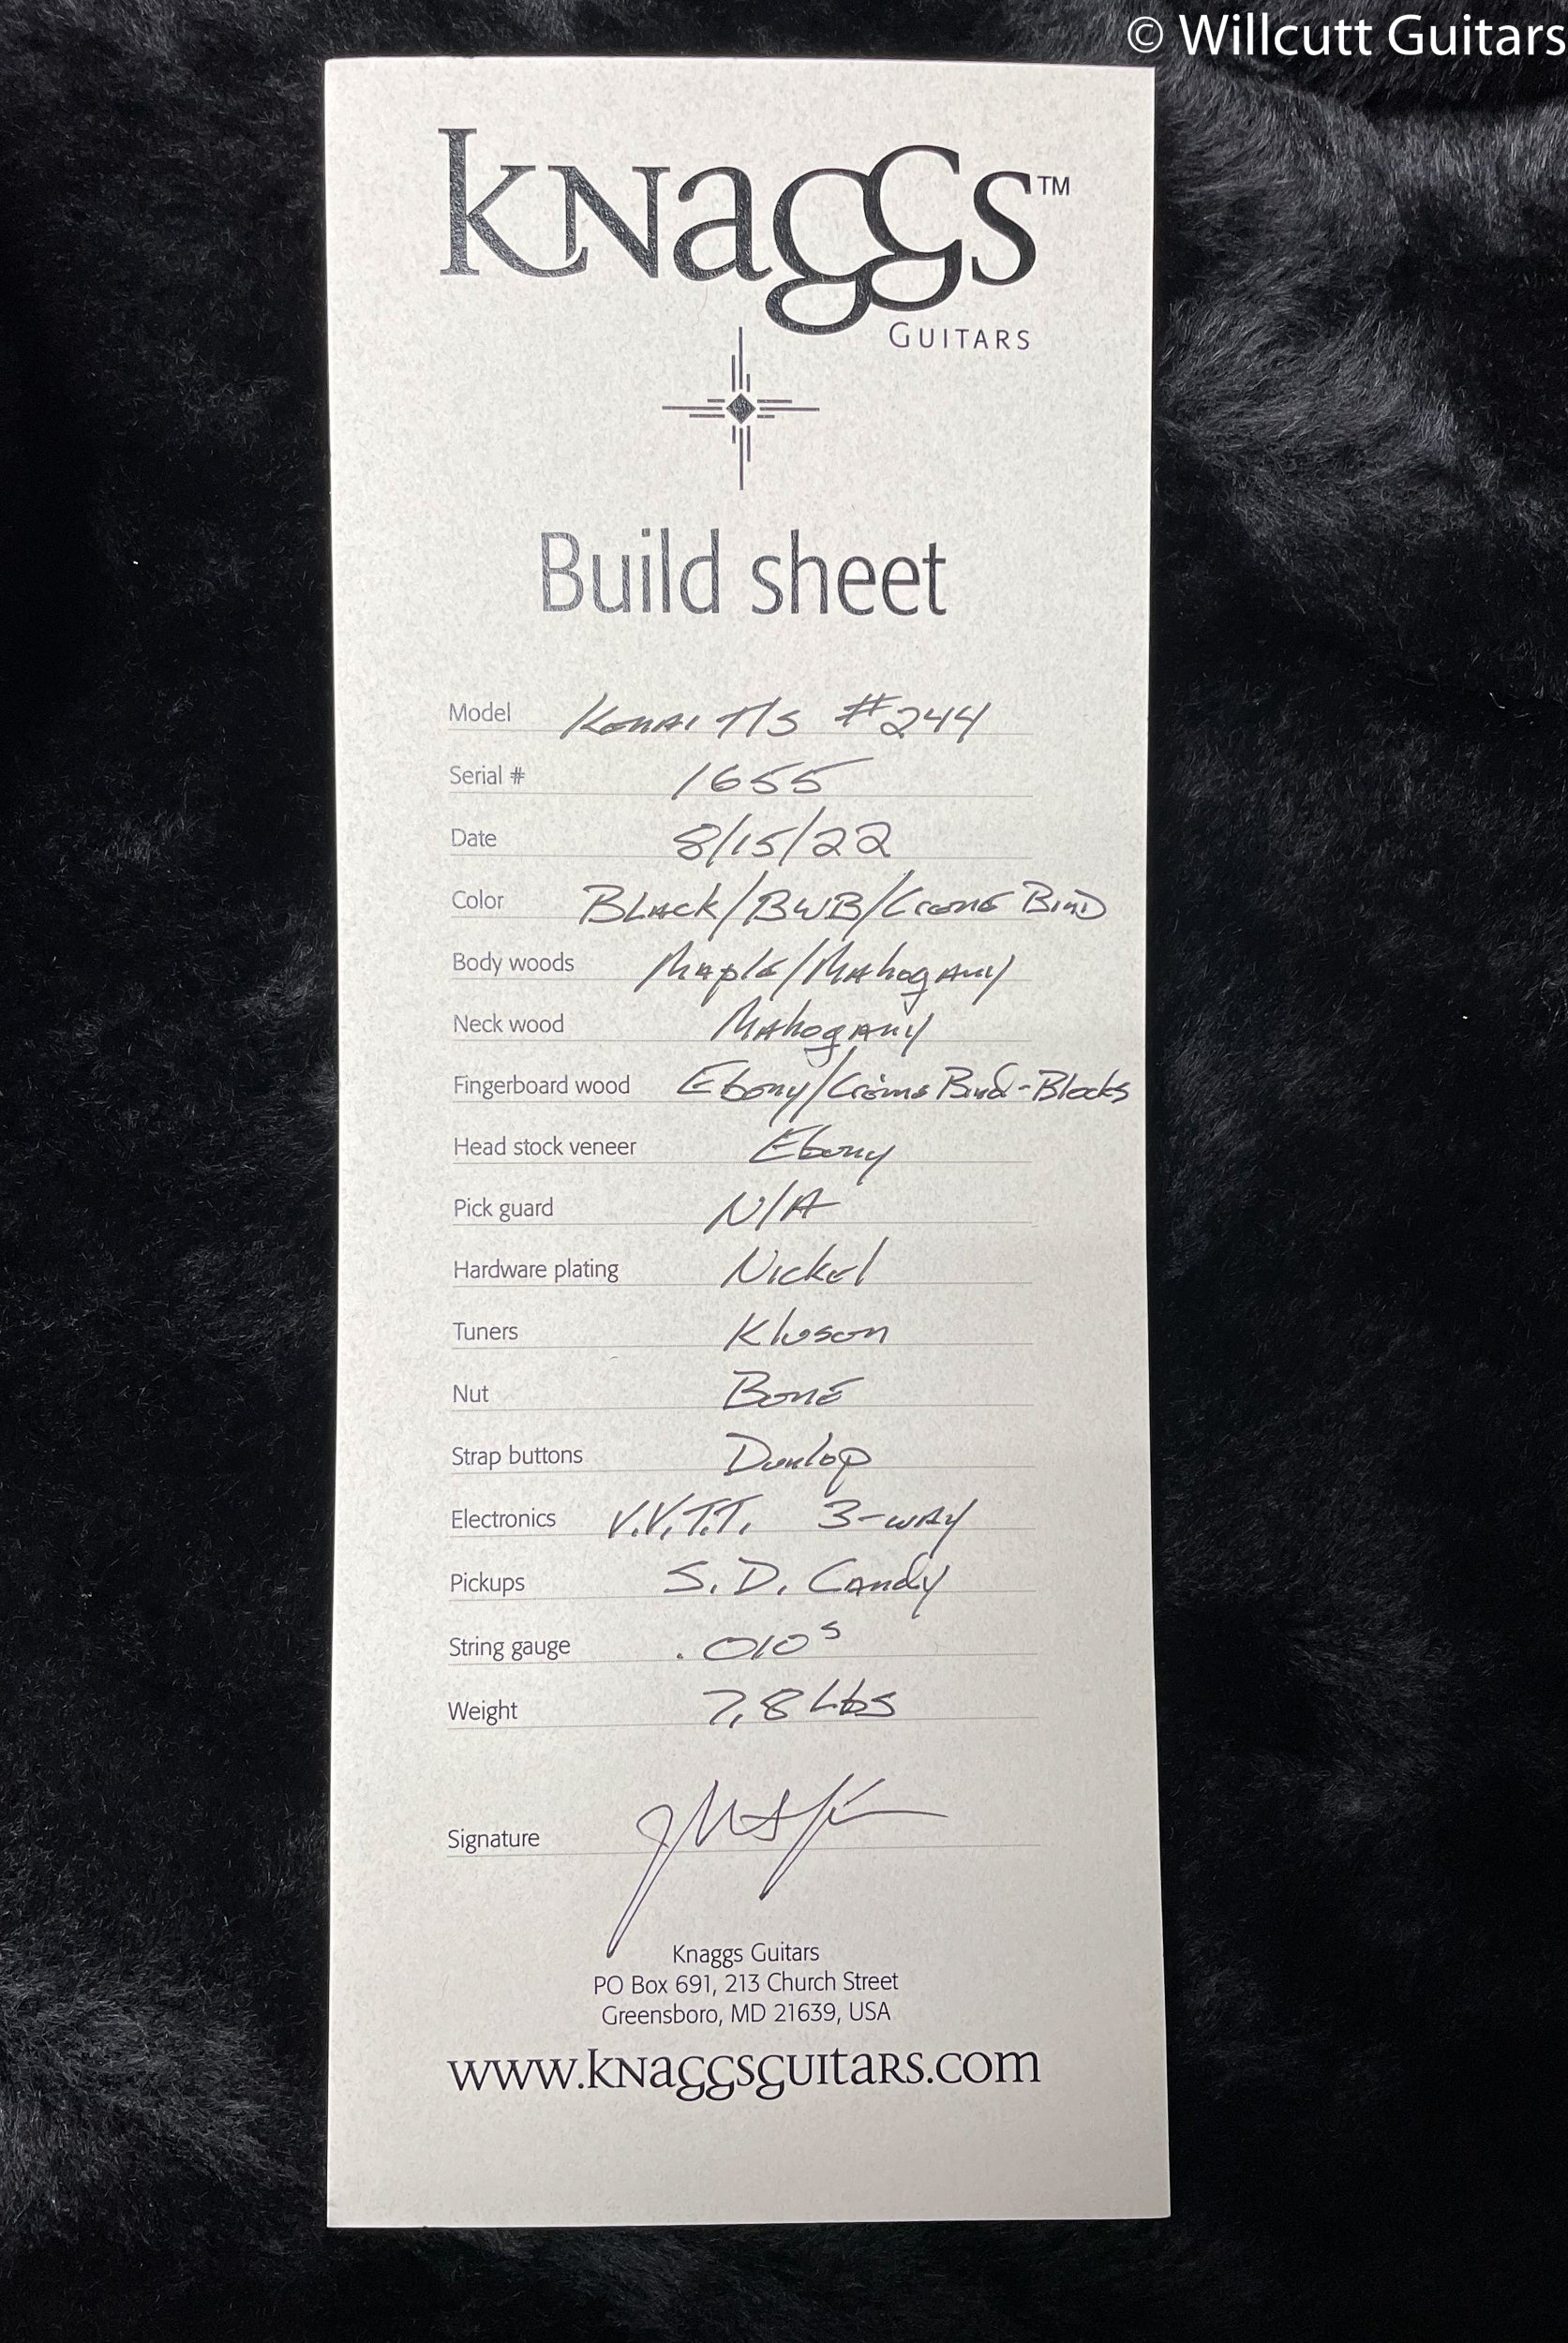 © Willcutt Guitars
Knaggs™
Guitars
Build sheet
Model Kenai T/S #244
Serial # 1655
Date 8/15/22
Color Black/BWB/Creme Bind
Body woods Maple/Mahogany
Neck wood Mahogany
Fingerboard wood Ebony/Creme Bind-Blocks
Head stock veneer Ebony
Pick guard N/A
Hardware plating Nickel
Tuners Kluson
Nut Bone
Strap buttons Dunlop
Electronics V.V.T.T. 3-way
Pickups S.D. Candy
String gauge .010s
Weight 7.8 Lbs
Signature
Knaggs Guitars
PO Box 691, 213 Church Street
Greensboro, MD 21639, USA
www.knaggsguitars.com